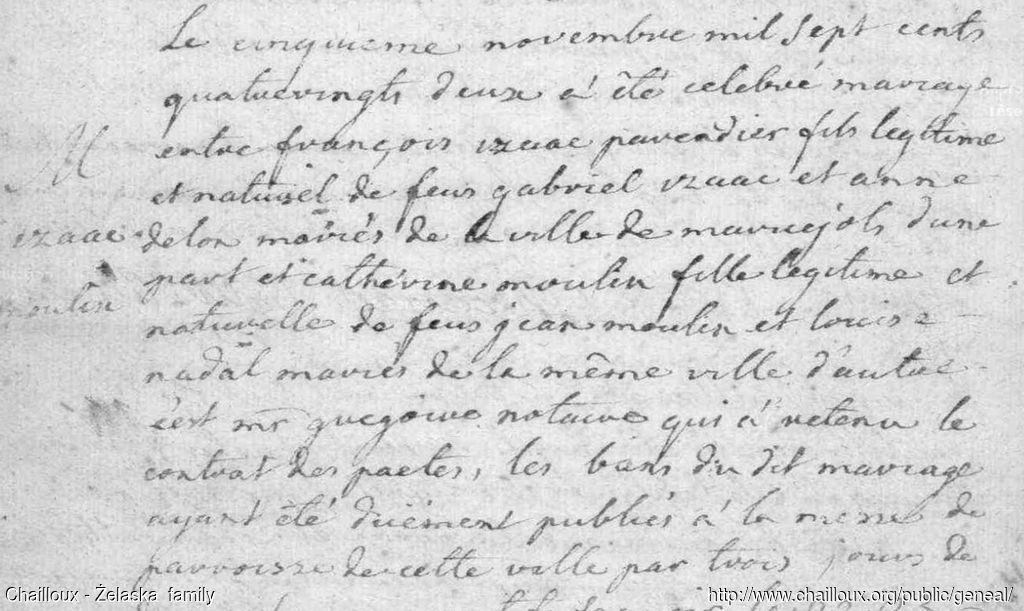 Le cinquieme novembre mil sept cents
quatrevingts deux a été celebré mariage
M
entre françois izaac parendier fils legitime
et naturel de feus gabriel izaac et anne
izaac
delon mariés de la ville de maruejols d'une
part et cathérine moulin fille legitime et
moulin
naturelle de feus jean moulin et louise
nadal mariés de la même ville d'autre
c'est mr gregoire notaire qui a retenu le
contrat des pactes, les bans du dit mariage
ayant été duëment publiés a la messe de
parroisse de cette ville par trois jours de
Chailloux - Želaska family
http://www.chailloux.org/public/geneal/